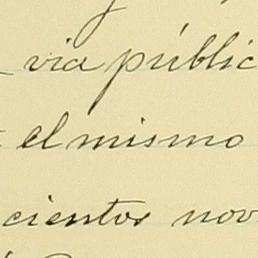 via públic
el mismo
cientos nov